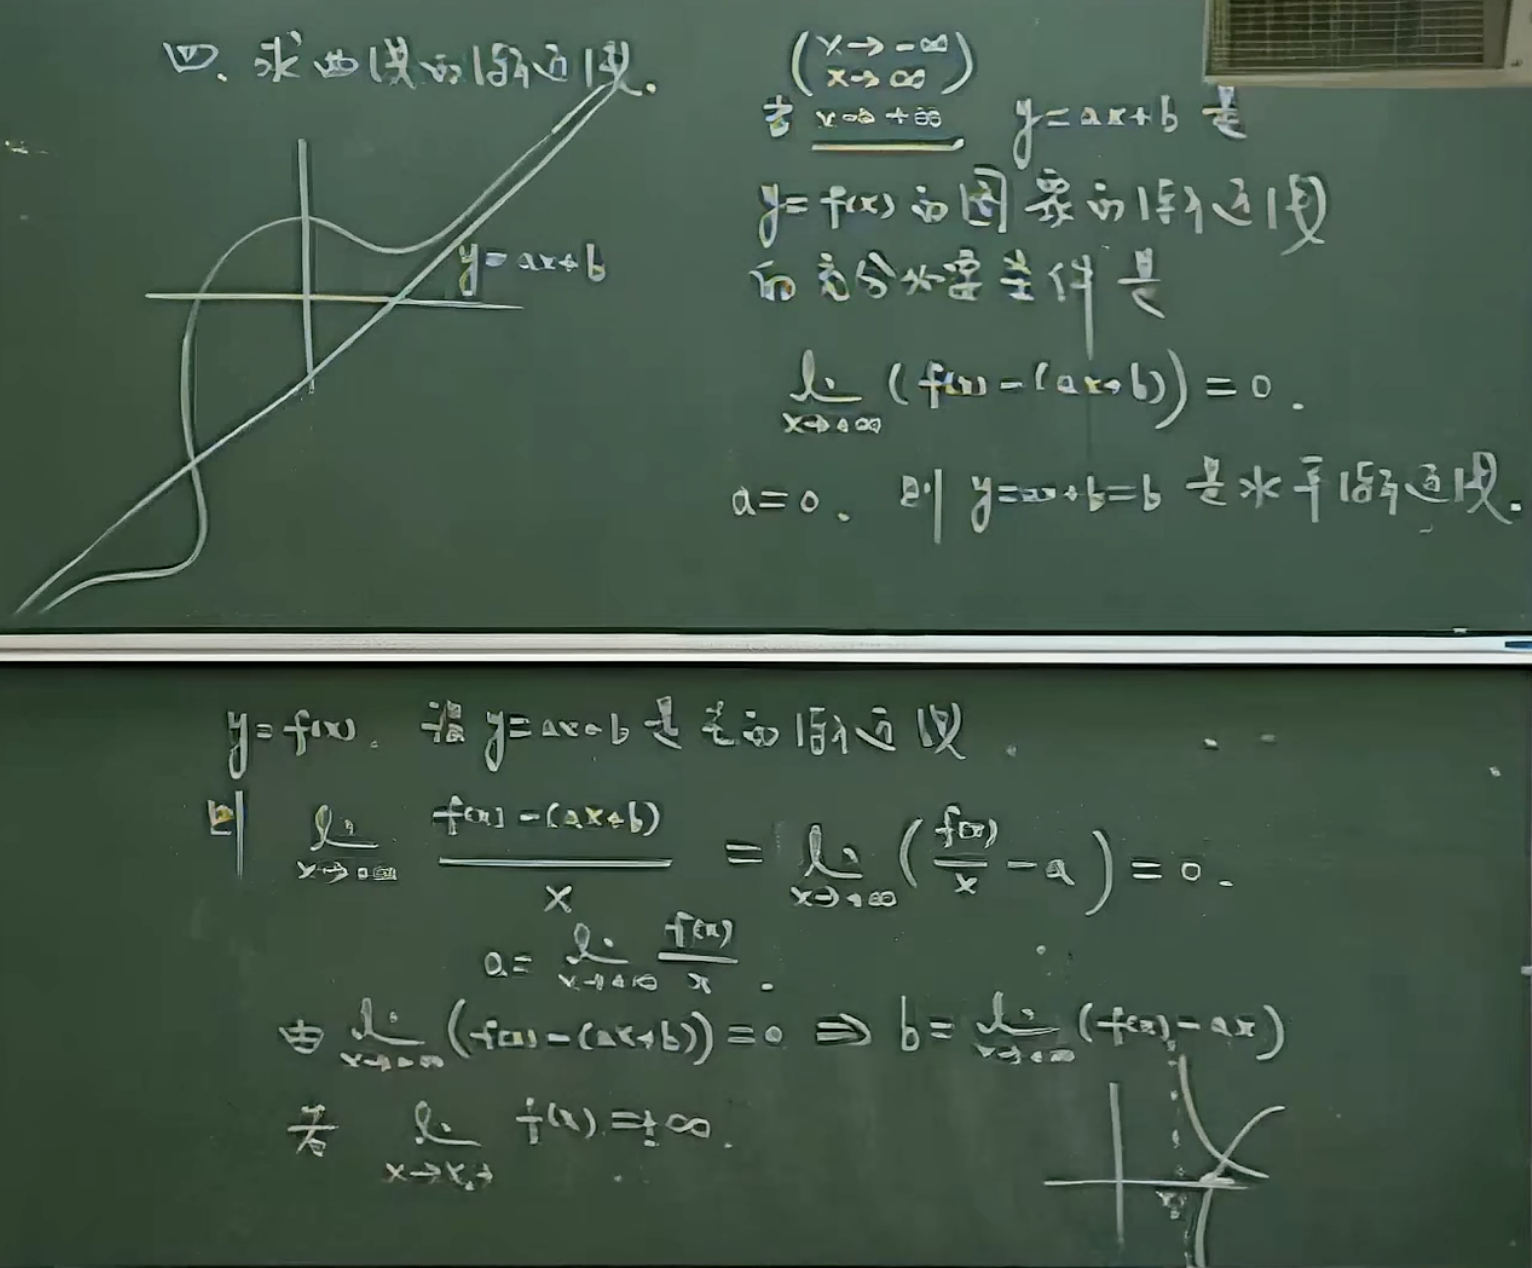 四、求曲线的渐近线.
y=ax+b
(x→-∞
x→∞)
若 x→+∞ y=ax+b 是
y=f(x) 的图象的渐近线
的充分必要条件是
lim x→+∞ (f(x)-(ax+b))=0.
a=0. 则 y=ax+b=b 是水平渐近线.
y=f(x). 设 y=ax+b 是它的渐近线
则 lim x→+∞ (f(x)-(ax+b))/x = lim x→+∞ (f(x)/x - a)=0.
a= lim x→+∞ f(x)/x.
由 lim x→+∞ (f(x)-(ax+b))=0 ⇒ b= lim x→+∞ (f(x)-ax)
若 lim f(x)=±∞.